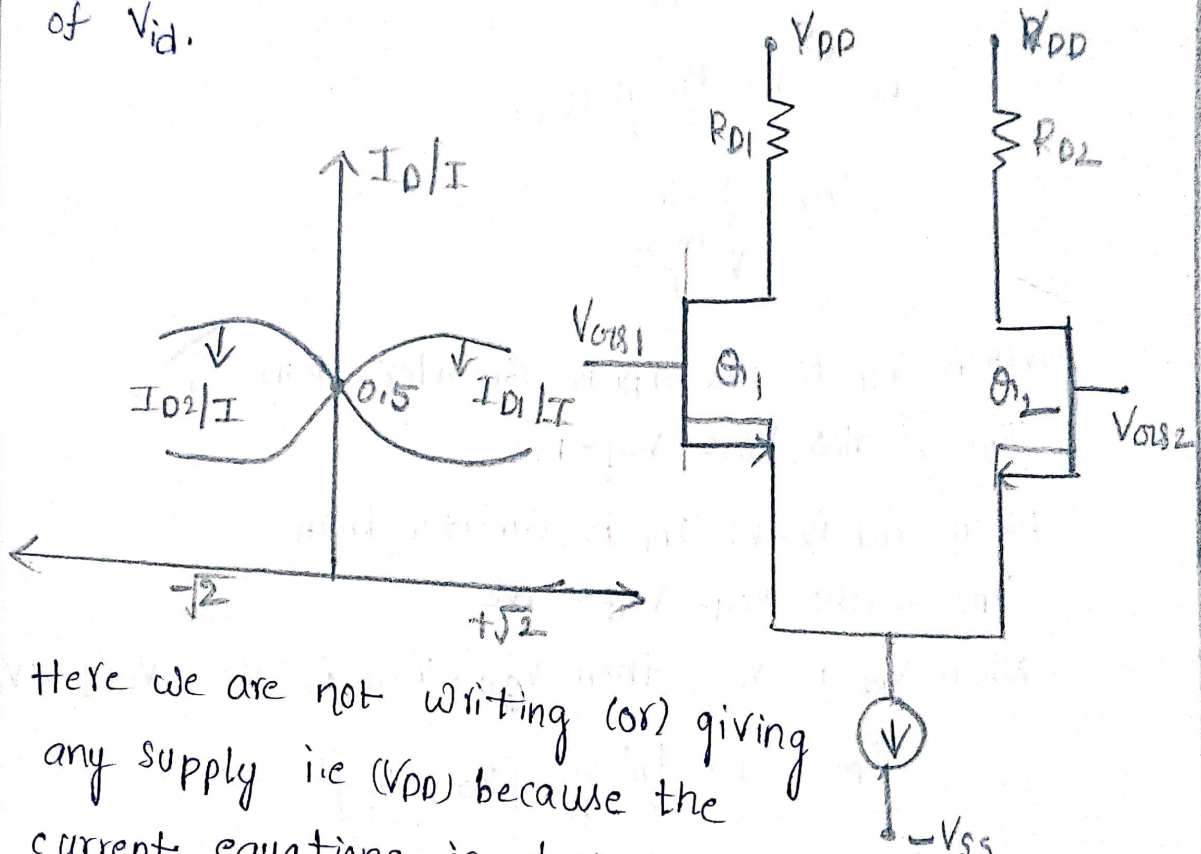 of Vid.
VDD
VDD
RD1
RD2
ID/I
VGS1
Q1
Q2
VGS2
ID2/I
0.5
ID1/I
-√2
+√2
Here we are not writing (or) giving
any supply i.e (VDD) because the
-VSS
current equations is